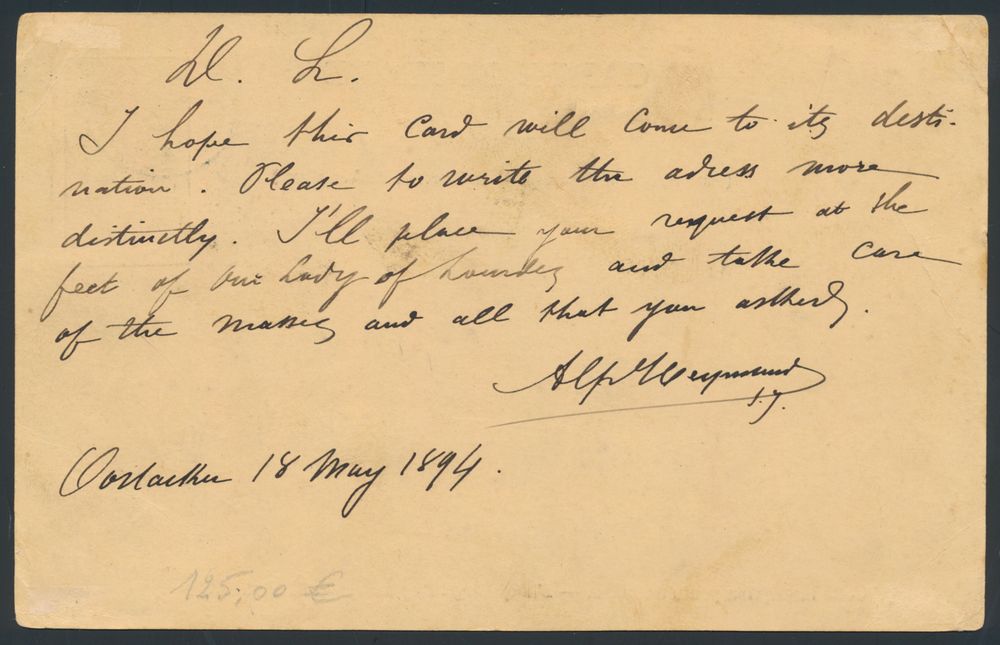 D. L.
I hope this card will come to its desti-
nation. Please to write the adress more
distinctly. I'll place your request at the
feet of Our Lady of Lourdes and take care
of the masses and all that you asked.
Alp. Heymund
s.j.
Oostacker 18 May 1894.
125,00 €